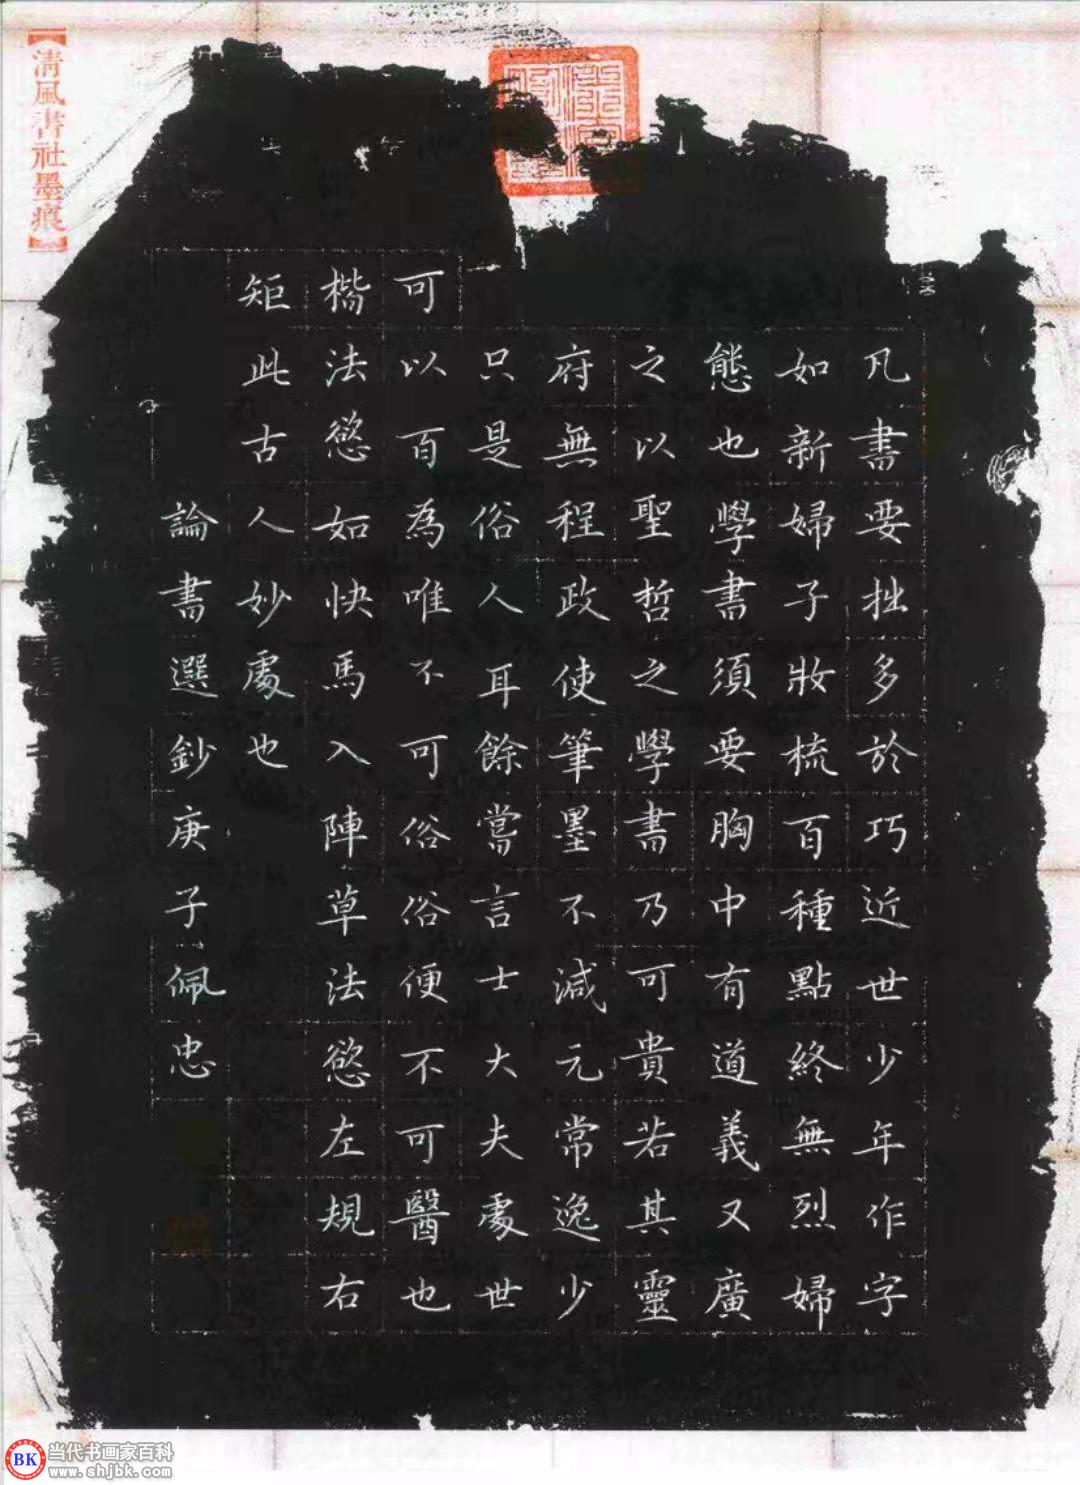 凡書要拙多於巧近世少年作字
如新婦子妝梳百種點終無烈婦
態也學書須要胸中有道義又廣
之以聖哲之學書乃可貴若其靈
府無程政使筆墨不減元常逸少
只是俗人耳餘嘗言士大夫處世
可以百為唯不可俗俗便不可醫也
楷法慾如快馬入陣草法慾左規右
矩此古人妙處也
論書選鈔庚子佩忠
【清風書社墨痕】
BK 当代书画家百科
www.shjbk.com